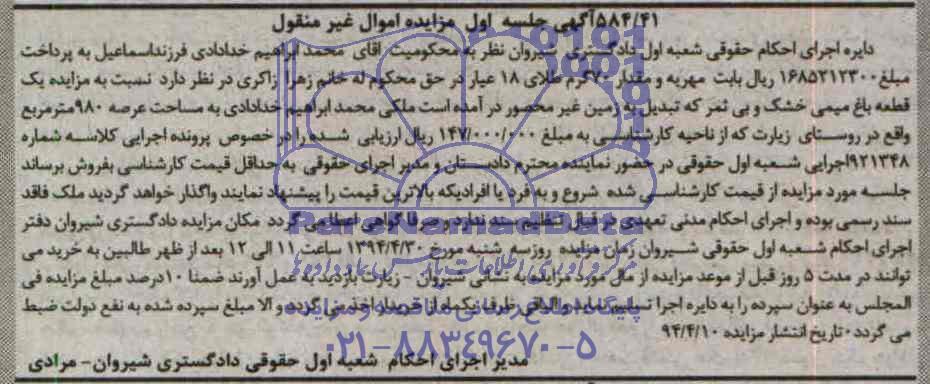 ۵۸۴/۴۱آگهی جلسه اول مزایده اموال غیر منقول
دایره اجرای احکام حقوقی شعبه اول دادگستری شیروان نظر به محکومیت اقای محمد ابراهیم خدادادی فرزنداسماعیل به پرداخت
مبلغ۱۶۸۵۲۱۲۳۰۰ ریال بابت مهریه و مقدار ۷۰گرم طلای ۱۸ عیار در حق محکوم له خانم زهرا زاکری در نظر دارد نسبت به مزایده یک
قطعه باغ میمی خشک و بی ثمر که تبدیل به زمین غیر محصور در آمده است ملکی محمد ابراهیم خدادادی به مساحت عرصه ۹۸۰مترمربع
واقع در روستای زیارت که از ناحیه کارشناسی به مبلغ ۱۴۷/۰۰۰/۰۰۰ ریال ارزیابی شده را در خصوص پرونده اجرایی کلاسه شماره
۹۲۱۳۴۸اجرایی شعبه اول حقوقی در حضور نماینده محترم دادستان و مدیر اجرای حقوقی به حداقل قیمت کارشناسی بفروش برساند
جلسه مورد مزایده از قیمت کارشناسی شده شروع و به فرد یا افرادیکه بالاترین قیمت را پیشنهاد نمایند واگذار خواهد گردید ملک فاقد
سند رسمی بوده و اجرای احکام مدنی تعهدی در قبال تنظیم سند ندارد و صرفا گواهی اعطا می گردد مکان مزایده دادگستری شیروان دفتر
اجرای احکام شعبه اول حقوقی شیروان زمان مزایده روزسه شنبه مورخ ۱۳۹۴/۴/۳۰ ساعت ۱۱ الی ۱۲ بعد از ظهر طالبین به خرید می
توانند در مدت ۵ روز قبل از موعد مزایده از مال مورد مزایده به نشانی شیروان - زیارت بازدید به عمل آورند ضمنا ۱۰درصد مبلغ مزایده فی
المجلس به عنوان سپرده را به دایره اجرا تسلیم نماید والباقی ظرف یکماه از خریدار اخذ می گردد و الا مبلغ سپرده شده به نفع دولت ضبط
می گردد۰تاریخ انتشار مزایده ۹۴/۴/۱۰
مدیر اجرای احکام شعبه اول حقوقی دادگستری شیروان- مرادی
Par Namad Data
۰۲۱-۸۸۳۴۹۶۷۰-۵